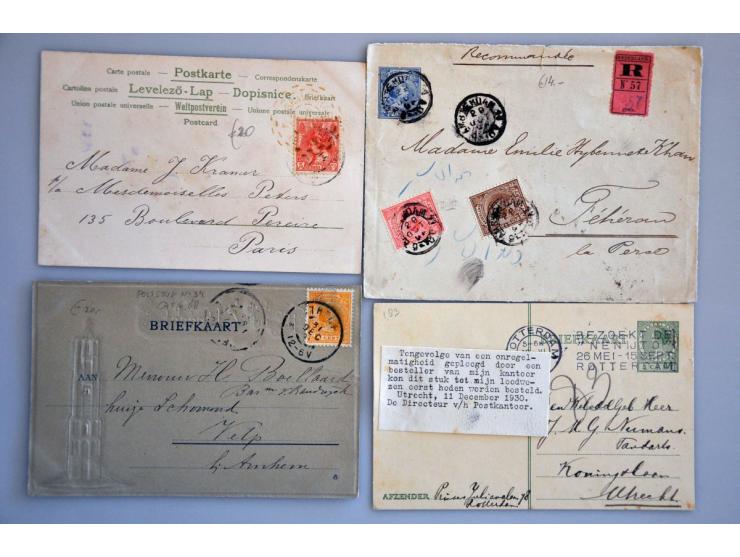 Carte postale — Postkarte — Correspondenskarte
Cartolina postale — Levelező-Lap — Dopisnice. Briefkaart
Union postale universelle — Weltpostverein — Unione postale universale
Postcard.
€20
Madame J. Kramer
Mesdemoiselles Peters
135 Boulevard Pereire
Paris
Recommandée
€14.-
R
No 57
Madame Emilie
Téhéran
la Perse
BRIEFKAART
AAN
H Boellaard
huize Schoonoord
Velp
bij Arnhem
6
ROTTERDAM
BEZOEKT DE
NENIJTO
26 MEI-15 SEPT
ROTTERDAM
Tengevolge van een onregel-
matigheid gepleegd door een
besteller van mijn kantoor
kon dit stuk tot mijn leedwe-
zen eerst heden worden besteld.
Utrecht, 11 December 1930.
De Directeur v/h Postkantoor.
Den WelEdelGeb Heer
J. M. G. Neumans
Tandarts
Koningslaan
Utrecht
AFZENDER Prins Julianalaan 78
Rotterdam